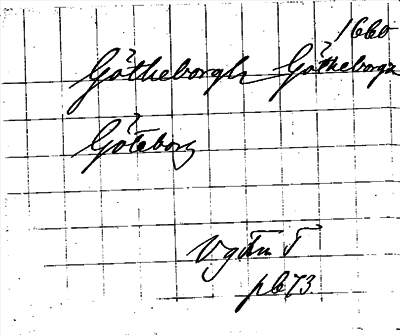 1660
Götheborgh Götheborgz
Göteborg
Vgötn T
pb 73.